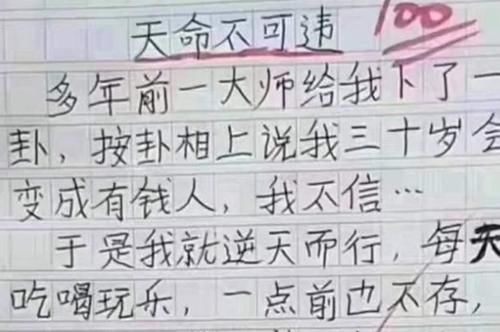 天命不可违 100
多年前一大师给我下了一
卦，按卦相上说我三十岁会
变成有钱人，我不信…
于是我就逆天而行，每天
吃喝玩乐，一点前也不存，